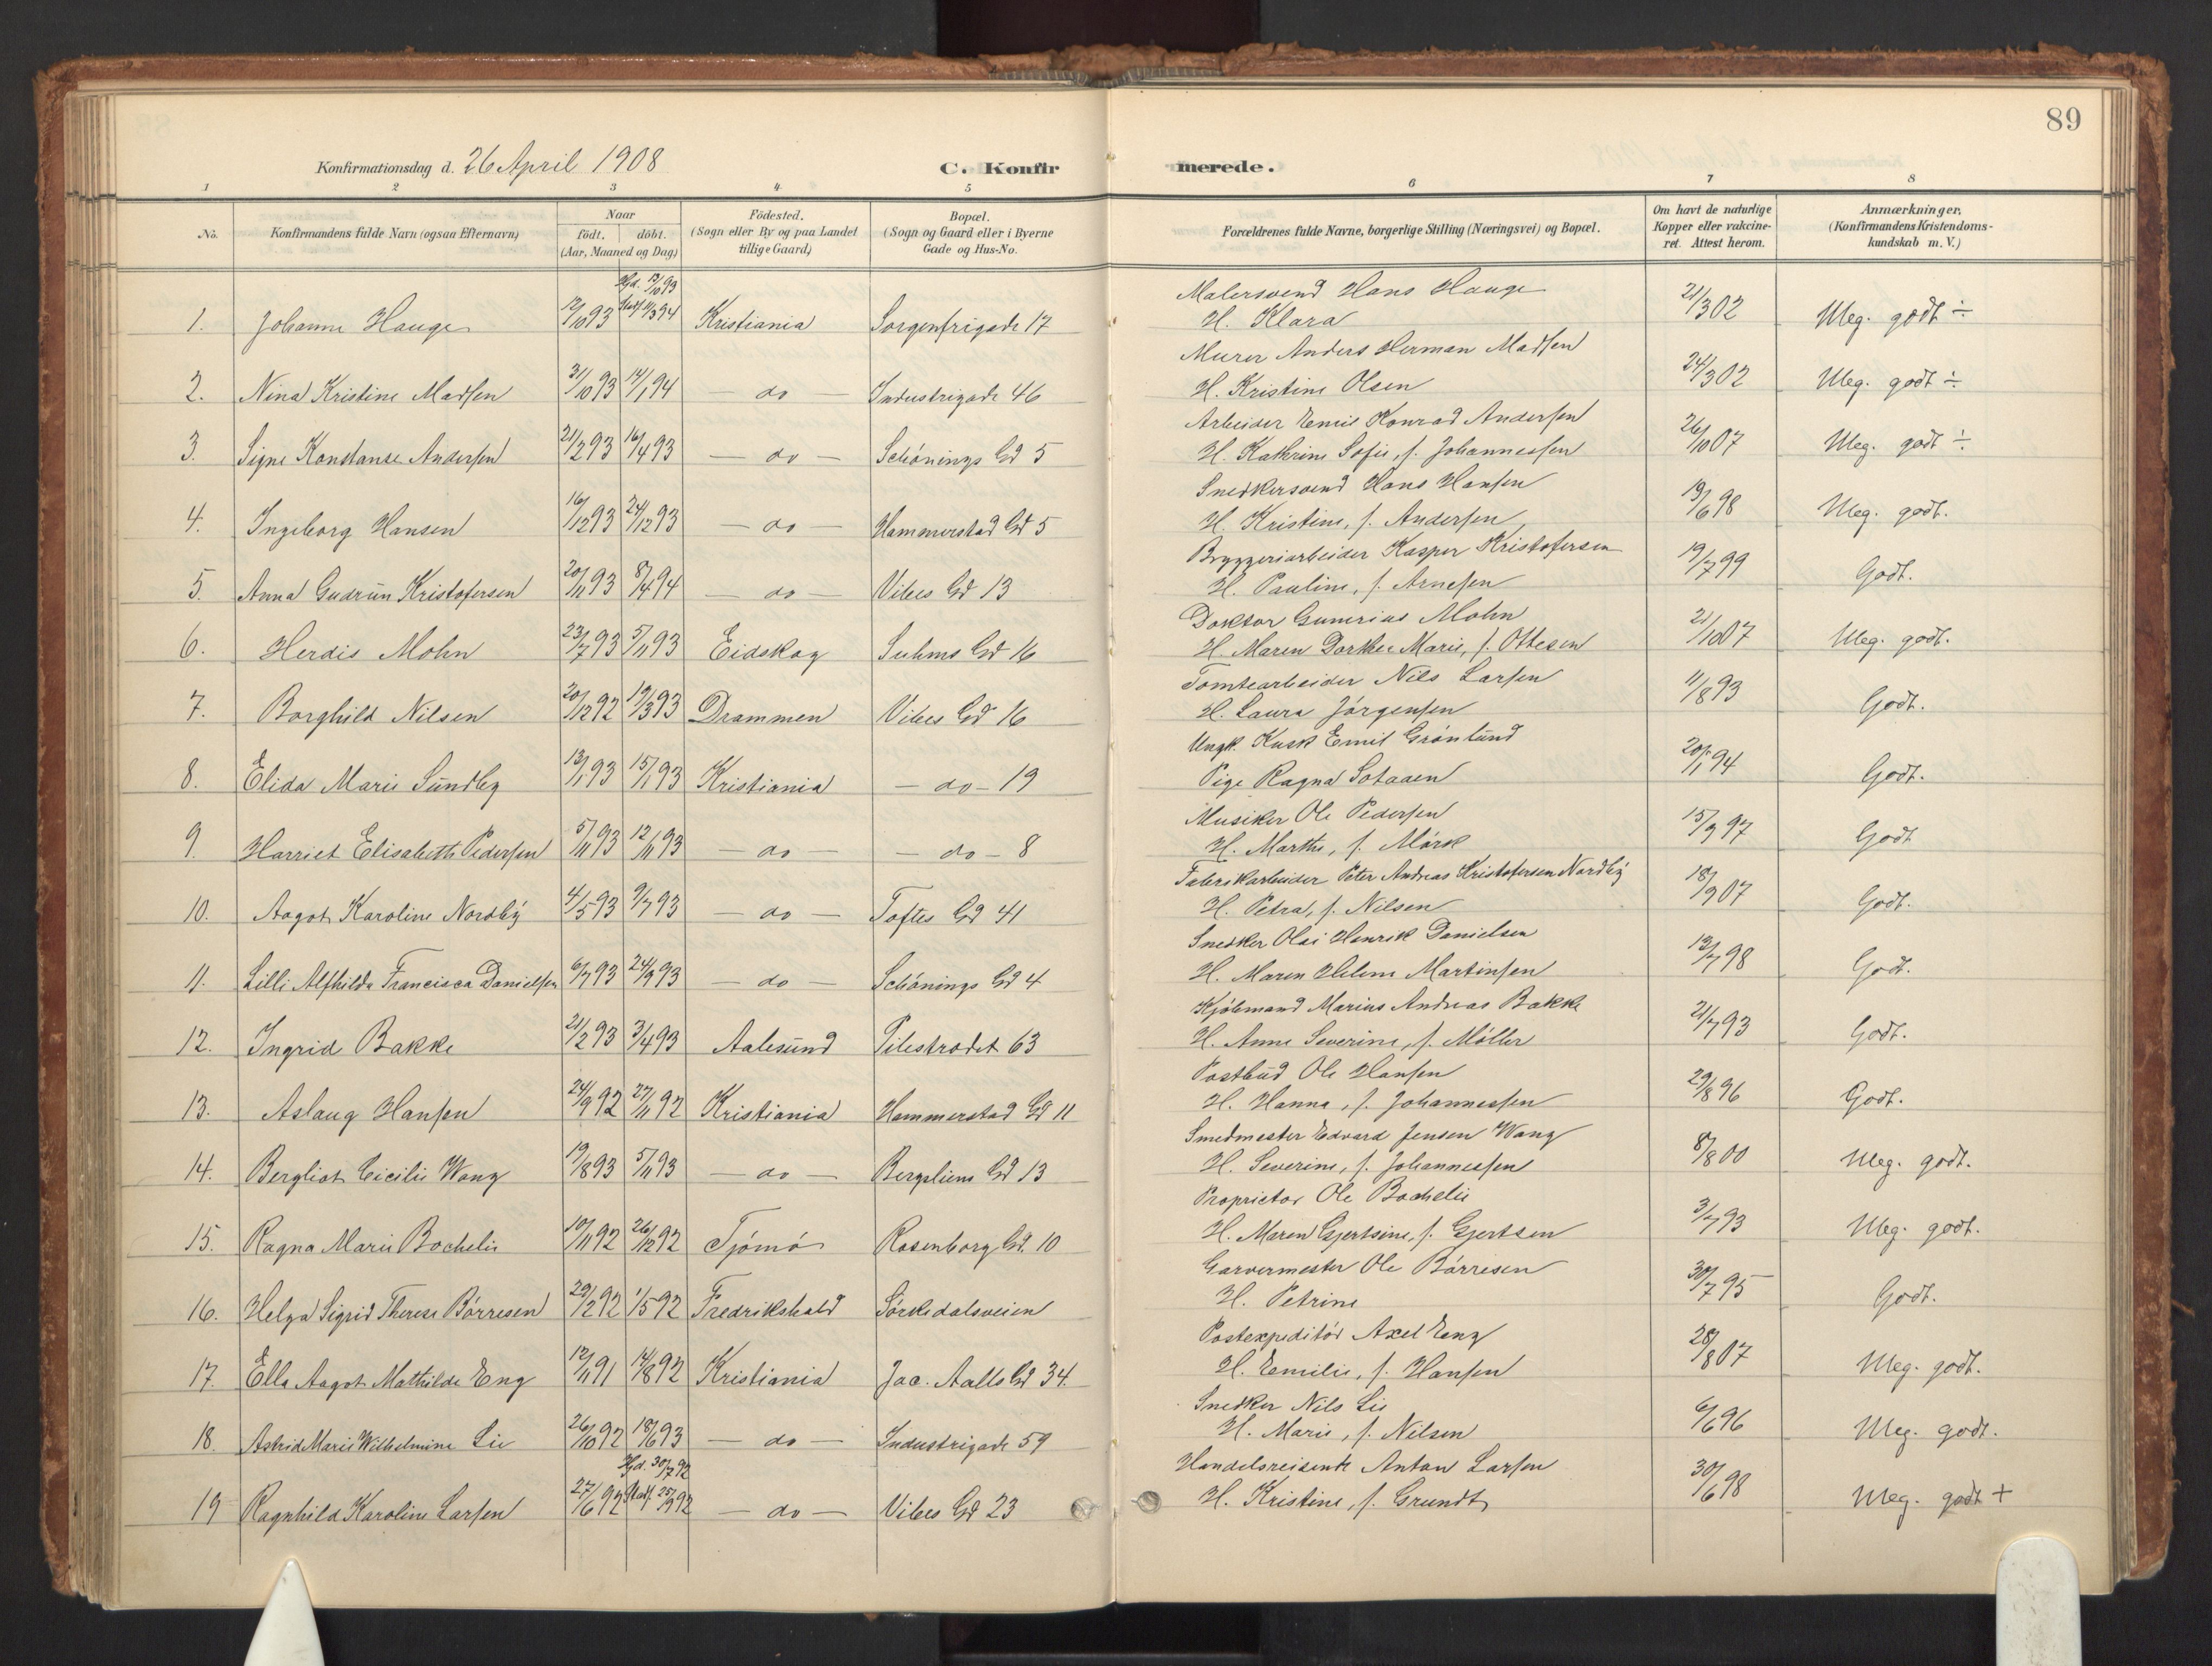 89
Konfirmationsdag d. 26 April 1908
C. Konfirmerede.
1 2 3 4 5 6 7 8
No. Konfirmandens fulde Navn (ogsaa Efternavn) Naar födt. döbt. (Aar, Maaned og Dag) Födested. (Sogn eller By og paa Landet tillige Gaard) Bopæl. (Sogn og Gaard eller i Byerne Gade og Hus-No. Forældrenes fulde Navne, borgerlige Stilling (Næringsvei) og Bopæl. Om havt de naturlige Kopper eller vakcineret. Attest herom. Anmærkninger. (Konfirmandens Kristendomskundskab m. V.)
Hjd. 12/10 93 Malersvend Hans Hauge
1. Johanne Hauge 12/10 93 Stadf. 11/3 94 Kristiania Sorgenfrigade 17 H. Klara 21/3 02 Meg. godt ÷
Murer Anders Herman Madsen
2. Nina Kristine Madsen 31/10 93 14/1 94 — do — Industrigade 46 H. Kristine Olsen 24/3 02 Meg. godt ÷
Arbeider Emil Konrad Andersen
3. Signe Konstanse Andersen 21/2 93 16/4 93 — do — Schönings Gd 5 H. Kathrine Sofie, f. Johannessen 26/10 07 Meg. godt ÷
Snedkersvend Hans Hansen
4. Ingeborg Hansen 16/12 93 24/12 93 — do — Hammerstad Gd 5 H. Kristine, f. Andersen 19/6 98 Meg. godt.
Bryggeriarbeider Kasper Kristofersen
5. Anna Gudrun Kristofersen 20/11 93 8/4 94 — do — Vibes Gd 13 H. Pauline, f. Arnesen 19/7 99 Godt.
Doktor Gunerius Mohn
6. Herdis Mohn 23/7 93 5/11 93 Eidskog Suhms Gd 16 H. Maren Dorthe Marie, f. Ottesen 21/10 07 Meg. godt.
Tomtearbeider Nils Larsen
7. Borghild Nilsen 20/12 92 19/3 93 Drammen Vibes Gd 16 H. Laura Jörgensen 11/8 93 Godt.
Ungk. Kusk Emil Grönlund
8. Elida Marie Sundby 13/1 93 15/1 93 Kristiania — do — 19 Pige Ragna Sotaaen 20/1 94 Godt.
Musiker Ole Pedersen
9. Harriet Elisabeth Pedersen 5/11 93 12/11 93 — do — — do — 8 H. Marthe, f. Mörk 15/9 97 Godt
Fabrikarbeider Peter Andreas Kristofersen Nordby
10. Aagot Karoline Nordby 4/5 93 9/7 93 — do — Toftes Gd 41 H. Petra, f. Nilsen 18/9 07 Godt.
Snedker Olai Henrik Danielsen
11. Lilli Alfhilda Francisca Danielsen 6/7 93 24/9 93 — do — Schönings Gd 4 H. Maren Helene Martinsen 13/7 98 Godt.
Kjöbmand Marius Andreas Bakke
12. Ingrid Bakke 21/2 93 3/4 93 Aalesund Pilestrædet 63 H. Anne Severine, f. Möller 21/7 93 Godt.
Postbud Ole Hansen
13. Aslaug Hansen 24/9 92 27/11 92 Kristiania Hammerstad Gd 11 H. Hanna, f. Johannessen 29/8 96 Godt.
Smedmester Edvard Jensen Wang
14. Bergliot Cicilie Wang 19/8 93 5/11 93 — do — Bergsliens Gd 13 H. Severine, f. Johannessen 8/8 00 Meg. godt.
Proprietær Ole Bochelie
15. Ragna Marie Bochelie 10/11 92 26/12 92 Tjömö Rosenborg Gd. 10 H. Maren Gjertsine, f. Gjertsen 3/7 93 Meg. godt.
Garvermester Ole Börresen
16. Helga Sigrid Therese Börresen 29/2 92 1/5 92 Fredrikshald Sörkedalsveien H. Petrine 30/7 95 Godt.
Postexpeditör Axel Eng
17. Ella Aagot Mathilde Eng 12/11 91 14/8 92 Kristiania Jac. Aalls Gd 34. H. Emilie, f. Hansen 28/8 07 Meg. godt.
Snedker Nils Lie
18. Astrid Marie Wilhelmine Lie 26/10 92 18/6 93 — do — Industrigade 59 H. Marie, f. Nilsen 6/6 96 Meg. godt.
Hjd. 30/7 92 Handelsreisende Anton Larsen
19 Ragnhild Karoline Larsen 27/6 92 Stadf. 25/9 92 — do — Vibes Gd 23 H. Kristine, f. Grundt 30/6 98 Meg. godt +